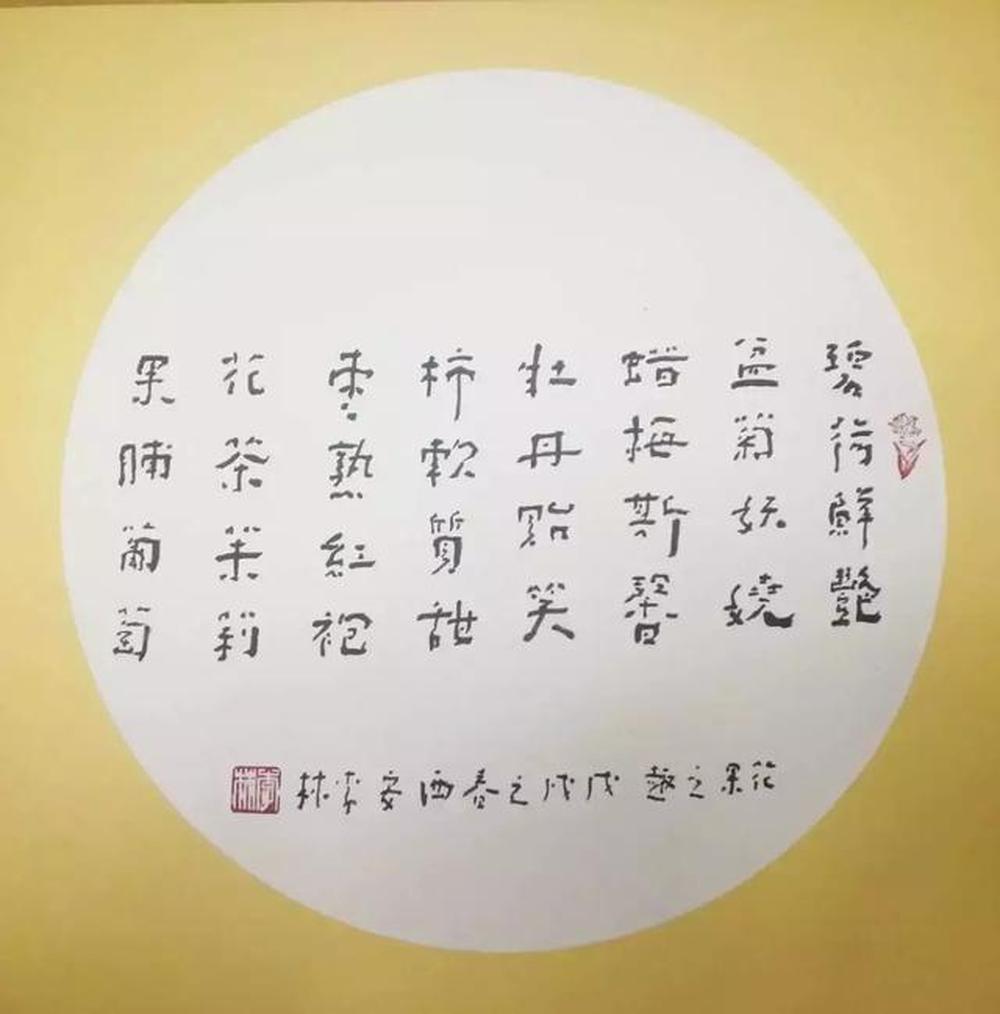 碧荷鮮艷
盆菊妖嬈
蜡梅斯馨
牡丹貽笑
柿軟質甜
枣熟紅袍
花茶茉莉
果脯葡萄
花果之趣 戊戌之春西安李林
李林